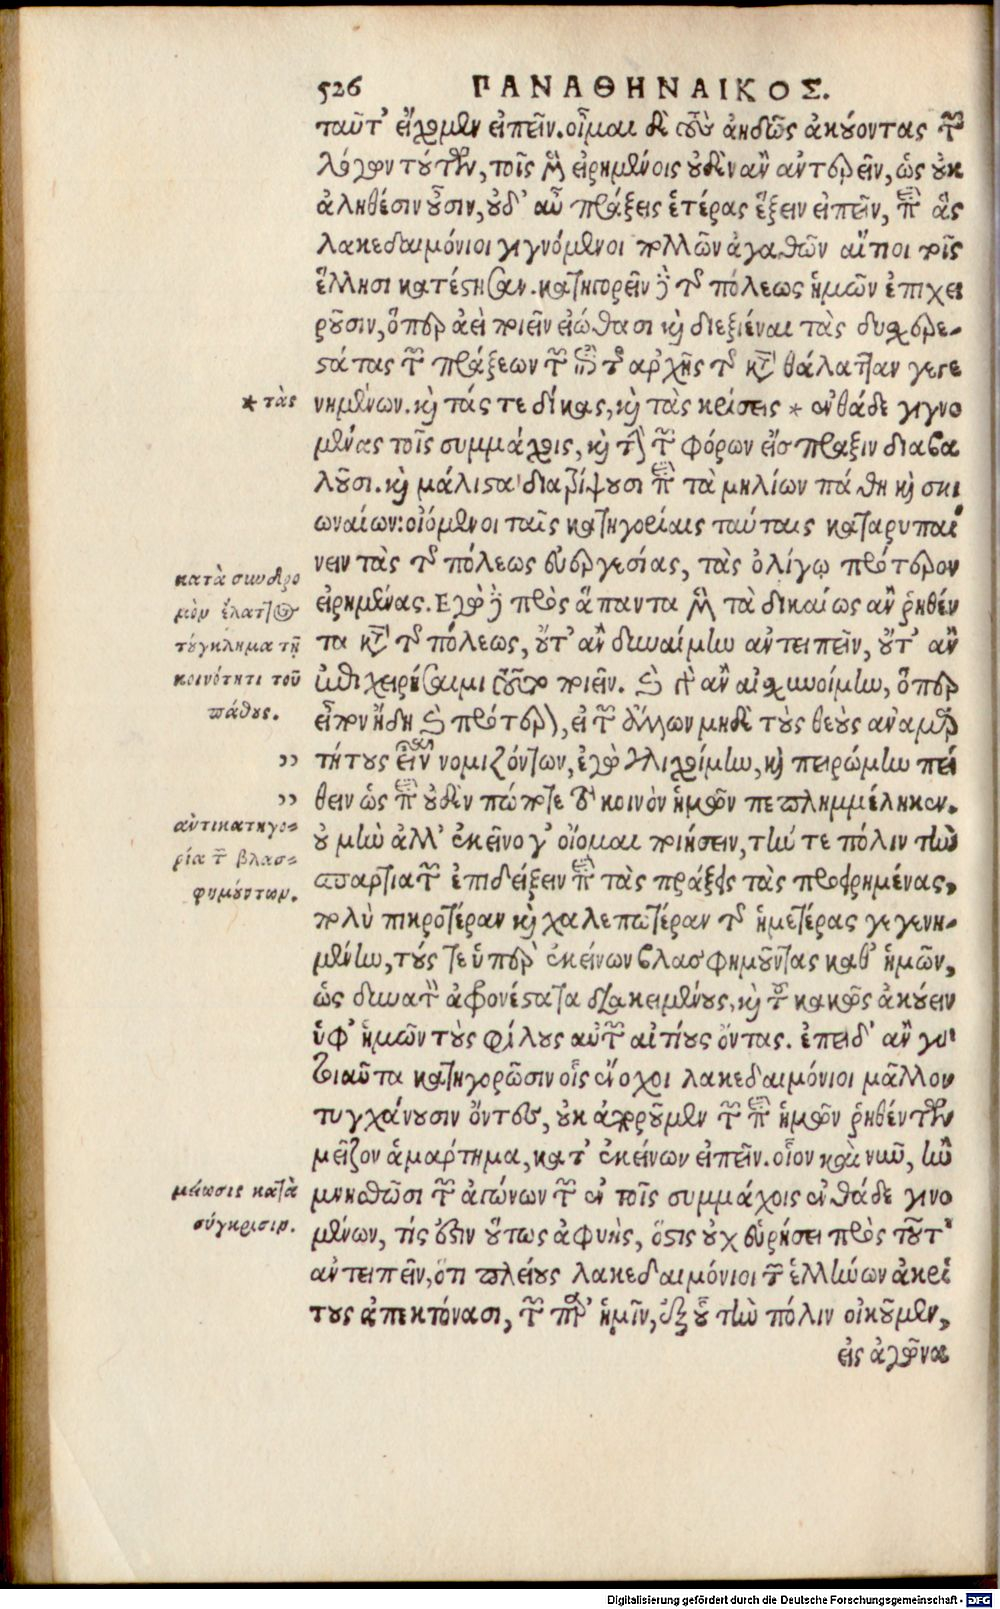 526 ΠΑΝΑΘΗΝΑΙΚΟΣ.
ταῦτ' εἴχομεν εἰπεῖν. οἶμαι δὲ τοὺς ἀηδῶς ἀκούοντας τῶν
λόγων τούτων, τοῖς μὲν εἰρημένοις οὐδὲν ἂν ἀντερεῖν, ὡς οὐκ
ἀληθέσιν οὖσιν, οὐδ' αὖ πράξεις ἑτέρας ἕξειν εἰπεῖν, περὶ ἃς
λακεδαιμόνιοι γιγνόμενοι πολλῶν ἀγαθῶν αἴτιοι τοῖς
ἕλλησι κατέστησαν. κατηγορεῖν δὲ τῆς πόλεως ἡμῶν ἐπιχει
ροῦσιν, ὅπερ ἀεὶ ποιεῖν εἰώθασι καὶ διεξιέναι τὰς δυσχερε-
στάτας τῶν πράξεων τῶν ἐπὶ τῆς ἀρχῆς τῆς κατὰ θάλατταν γεγε
* τὰς
νημένων. καὶ τάς τε δίκας, καὶ τὰς κρίσεις * ἐνθάδε γιγνο
μένας τοῖς συμμάχοις, καὶ τὴν τῶν φόρων εἴσπραξιν διαβα
λοῦσι. καὶ μάλιστα διατρίψουσι περὶ τὰ μηλίων πάθη καὶ σκι
ωναίων: οἰόμενοι ταῖς κατηγορίαις ταύταις καταρυπαί
νειν τὰς τῆς πόλεως εὐεργεσίας, τὰς ὀλίγῳ πρότερον
κατὰ συνδρο
μὸν ἐλαττοῖ
τοὔγκλημα τῇ
κοινότητι τοῦ
πάθους.
εἰρημένας. Ἐγὼ δὲ πρὸς ἅπαντα μὲν τὰ δικαίως ἂν ῥηθέν
τα κατὰ τῆς πόλεως, οὔτ' ἂν δυναίμην ἀντειπεῖν, οὔτ' ἂν
ἐπιχειρήσαιμι τοῦτο ποιεῖν. καὶ γὰρ ἂν αἰσχυνοίμην, ὅπερ
εἶπον ἤδη καὶ πρότερον, εἰ τῶν ἄλλων μηδὲ τοὺς θεοὺς ἀναμαρ
,, τήτους εἶναι νομιζόντων, ἐγὼ γλιχοίμην, καὶ πειρώμην πεί
,, θειν ὡς περὶ οὐδὲν πώποτε τὸ κοινὸν ἡμῶν πεπλημμέληκεν.
ἀντικατηγο-
ρία τῶν βλασ-
φημούντων.
οὐ μὴν ἀλλ' ἐκεῖνο γ' οἴομαι ποιήσειν, τήν τε πόλιν τὴν
σπαρτιατῶν ἐπιδείξειν περὶ τὰς πράξεις τὰς προειρημένας,
πολὺ πικροτέραν καὶ χαλεπωτέραν τῆς ἡμετέρας γεγενη-
μένην, τούς τε ὑπὲρ ἐκείνων βλασφημοῦντας καθ' ἡμῶν,
ὡς δυνατὸν ἀφρονέστατα διακειμένους, καὶ τοῦ κακῶς ἀκούειν
ὑφ' ἡμῶν τοὺς φίλους αὐτῶν αἰτίους ὄντας. ἐπειδ' ἂν γὰρ
τοιαῦτα κατηγορῶσιν οἷς ἔνοχοι λακεδαιμόνιοι μᾶλλον
τυγχάνουσιν ὄντες, οὐκ ἀποροῦμεν τῶν περὶ ἡμῶν ῥηθέντων
μεῖζον ἁμάρτημα, κατ' ἐκείνων εἰπεῖν. οἷον καὶ νῦν, ἢν
μείωσις κατὰ
σύγκρισιν.
μνησθῶσι τῶν ἀγώνων τῶν ἐν τοῖς συμμάχοις ἐνθάδε γινο
μένων, τίς ἐστιν οὕτως ἀφυὴς, ὅστις οὐχ εὑρήσει πρὸς τοῦτ'
ἀντειπεῖν, ὅτι πλείους λακεδαιμόνιοι τῶν ἑλλήνων ἀκρί
τους ἀπεκτόνασι, τῶν παρ' ἡμῖν, ἐξ οὗ τὴν πόλιν οἰκοῦμεν,
εἰς ἀγῶνα
Digitalisierung gefördert durch die Deutsche Forschungsgemeinschaft - DFG